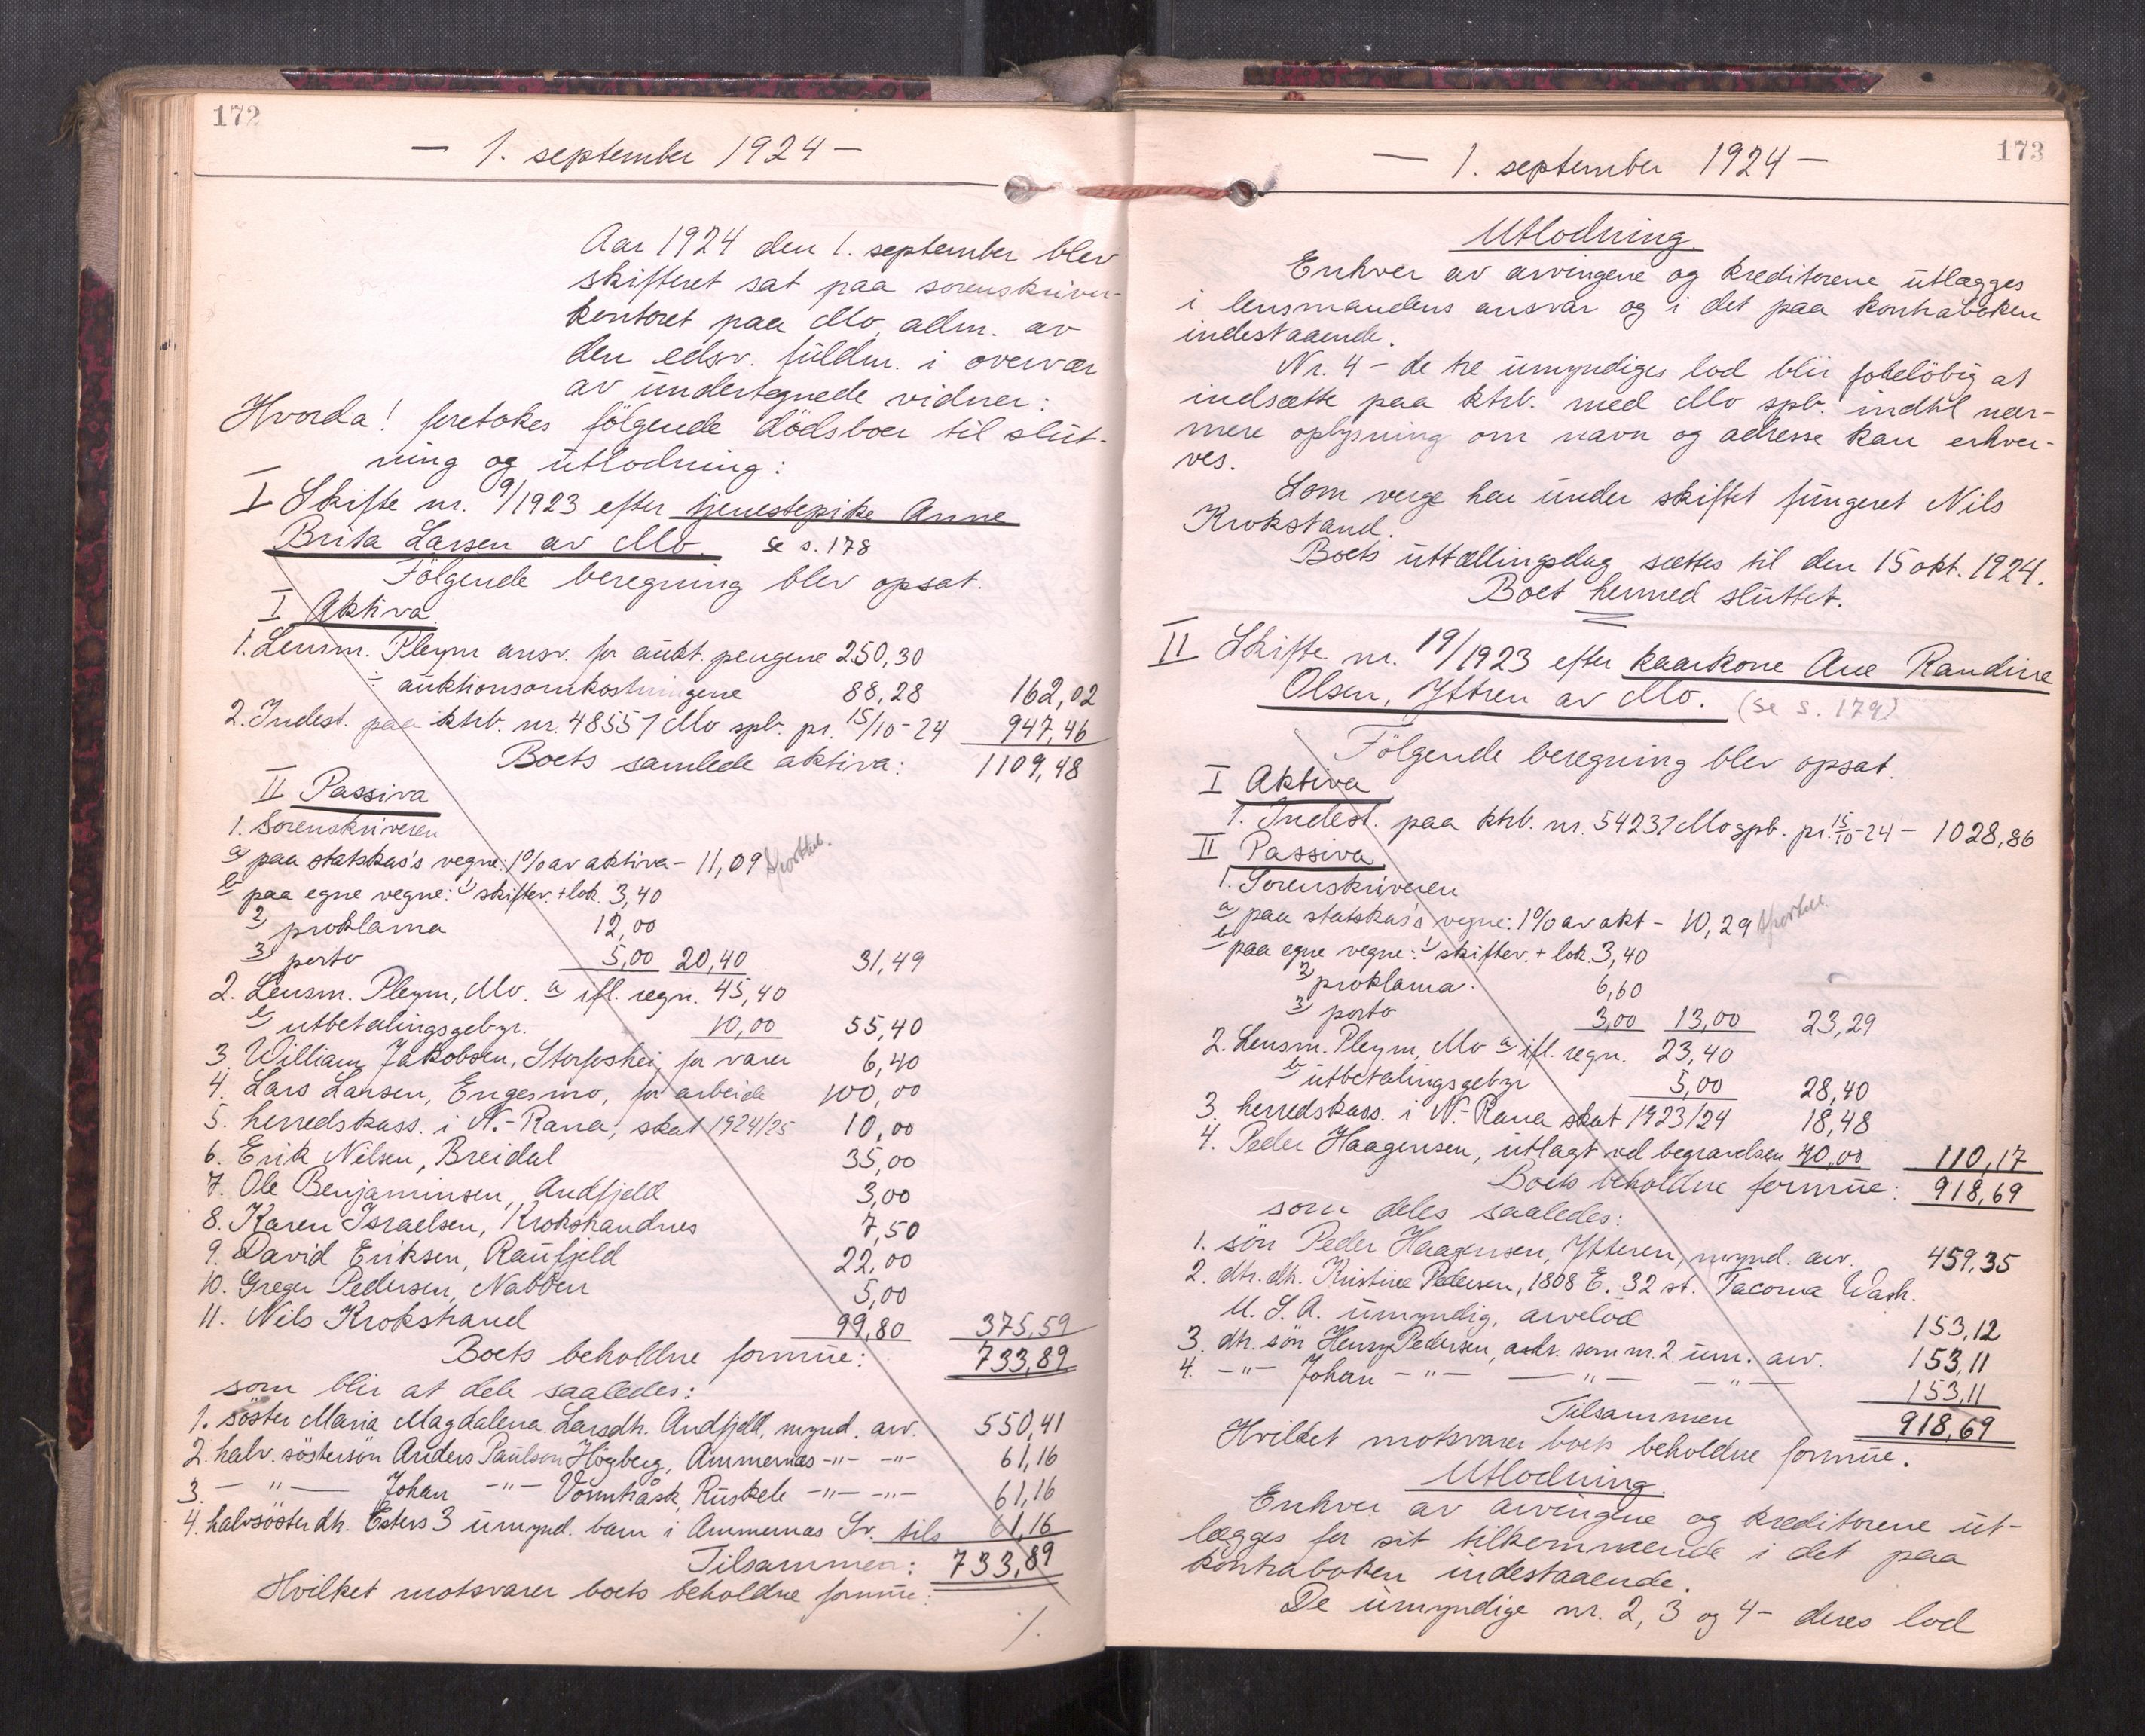 172
— 1. september 1924 —
Aar 1924 den 1. september blev
skifteret sat paa sorenskriver-
kontoret paa Mo, adm. av
den edsv. fuldm. i overvær
av undertegnede vidner:
Hvorda! foretokes følgende dödsboer til slut-
ning og utlodning:
I Skifte nr. 9/1923 efter tjenestepike Anne
Brita Larsen av Mo. se s. 178
Fölgende beregning blev opsat.
I Aktiva.
1. Lensm. Pleym ansv. for aukt. pengene 250,30
÷ auktionsomkostningene 88,28 162,02
2. Indest. paa ktrb. nr. 48557 Mo spb. pr. 15/10-24 947,46
Boets samlede aktiva: 1109,48
II Passiva
1. Sorenskriveren
a) paa statskas's vegne: 1% av aktiva - 11,09
b) paa egne vegne: 1) skiftev. + lok. 3,40
2) proklama 12,00
3) porto 5,00 20,40 31,49
2. Lensm. Pleym, Mo. a) ifl. regn. 45,40
b) utbetalingsgebyr. 10,00 55,40
3. William Jakobsen, Storforshei, for varer 6,40
4. Lars Larsen, Engesmo, for arbeide 100,00
5. herredskass. i N.-Rana, skat 1924/25 10,00
6. Erik Nilsen, Breidal 35,00
7. Ole Benjaminsen, Andfjeld 3,00
8. Karen Israelsen, Krokstrandnes 7,50
9. David Eriksen, Raufjeld 22,00
10. Greger Pedersen, Nabben 5,00
11. Nils Krokstrand 99,80 375,59
Boets beholdne formue: 733,89
som blir at dele saaledes:
1. söster Maria Magdalena Larsdtr. Andfjeld, mynd. arv. 550,41
2. halv. söstersön Anders Paulson Högberg, Ammernas -"- -"- 61,16
3. — " — Johan -"- Vormträsk, Ruskele -"- -"- 61,16
4. halvsösterdtr. Esters 3 umynd. barn i Ammernas Sv. tils 61,16
Tilsammen: 733,89
Hvilket motsvarer boets beholdne formue.
./.
173
— 1. september 1924 —
Utlodning.
Enhver av arvingene og kreditorene utlægges
i lensmandens ansvar og i det paa kontraboken
indestaaende.
Nr. 4 - de tre umyndiges lod blir foreløbig at
indsætte paa ktrb. med Mo spb. indtil nær-
mere oplysning om navn og adresse kan erhver-
ves.
Som verge har under skiftet fungeret Nils
Krokstand.
Boets uttællingsdag sættes til den 15 okt. 1924.
Boet hermed sluttet.
II Skifte nr. 19/1923 efter kaarkone Ane Randine
Olsen, Yttren av Mo. (se s. 179)
Fölgende beregning blev opsat.
I Aktiva
1. Indest. paa ktrb. nr. 54237 Mo spb. pr. 15/10-24 - 1028,86
II Passiva
1. Sorenskriveren
a) paa statskas's vegne: 1% av akt - 10,29
b) paa egne vegne: 1) skiftev. + lok. 3,40
2) proklama. 6,60
3) porto 3,00 13,00 23,29
2. Lensm. Pleym, Mo a) ifl. regn. 23,40
b) utbetalingsgebyr 5,00 28,40
3. herredskass. i N.-Rana skat 1923/24 18,48
4. Peder Haagensen, utlagt ved begravelsen 40,00 110,17
Boets beholdne formue: 918,69
som deles saaledes:
1. sön Peder Haagensen, Ytteren, mynd. arv. 459,35
2. dtr. dtr. Kristine Pedersen, 1808 E. 32 st. Tacoma Wash.
U. S. A. umyndig, arvelod 153,12
3. dtr. sön Henry Pedersen, adr. som nr. 2. um. arv. 153,11
4. -"- Johan -"- — " — — " — 153,11
Tilsammen 918,69
Hvilket motsvarer boets beholdne formue.
Utlodning.
Enhver av arvingene og kreditorene ut-
lægges for sit tilkommende i det paa
kontraboken indestaaende.
De umyndige nr. 2, 3 og 4 - deres lod